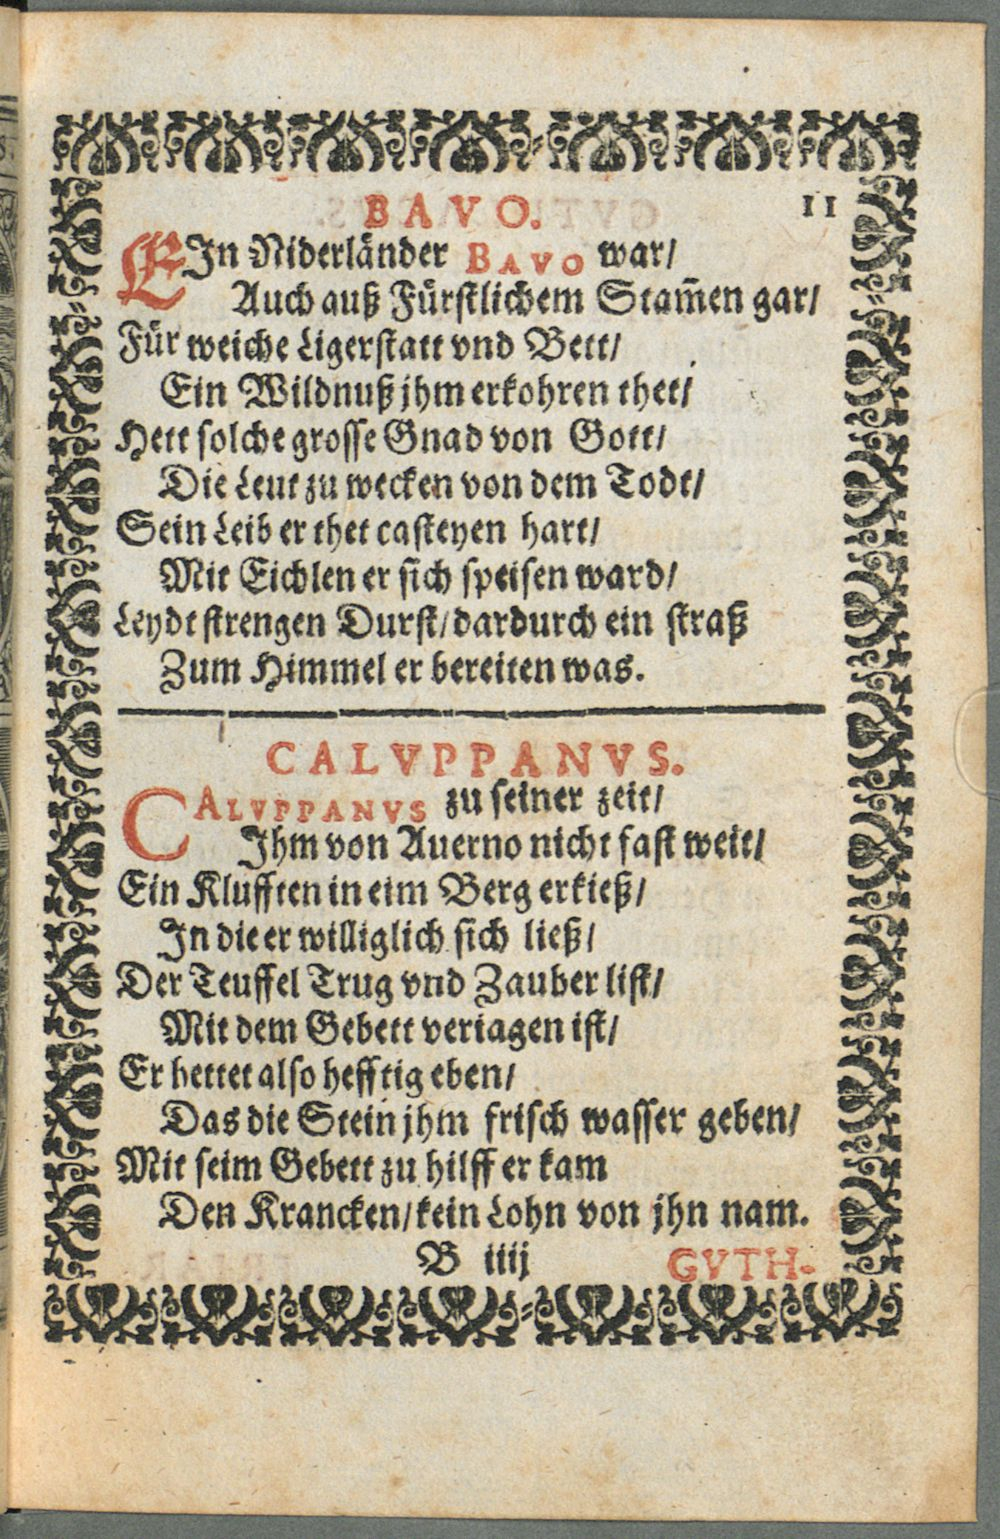 BAVO. 11
EIn Niderländer BAVO war/
Auch auß Fürstlichem Stam̃en gar/
Für weiche Ligerstatt vnd Bett/
Ein Wildnuß jhm erkohren thet/
Hett solche grosse Gnad von Gott/
Die Leut zu wecken von dem Todt/
Sein Leib er thet casteyen hart/
Mit Eichlen er sich speisen ward/
Leydt strengen Durst/ dardurch ein straß
Zum Himmel er bereiten was.
CALVPPANVS.
CALVPPANVS zu seiner zeit/
Ihm von Auerno nicht fast weit/
Ein Klufften in eim Berg erkieß/
In die er williglich sich ließ/
Der Teuffel Trug vnd Zauber list/
Mit dem Gebett veriagen ist/
Er bettet also hefftig eben/
Das die Stein jhm frisch wasser geben/
Mit seim Gebett zu hilff er kam
Den Krancken/ kein Lohn von jhn nam.
B iiij GVTH-